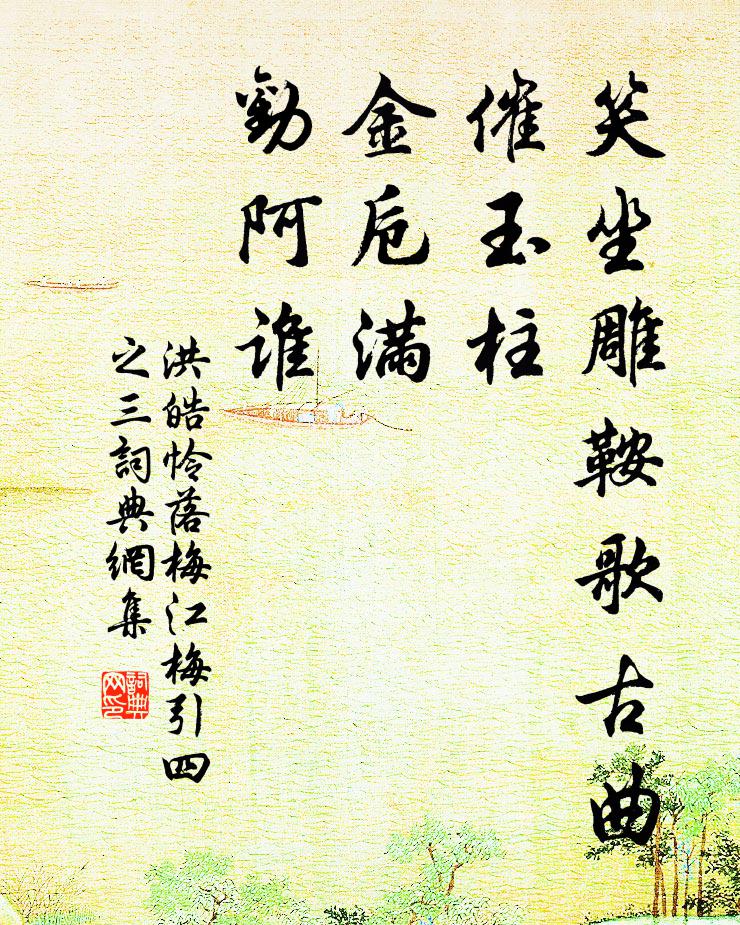 笑坐雕鞍歌古曲
催玉柱
金卮滿
勸阿誰
洪皓怜落梅江梅引四
之三詞典網集
詞典
网印